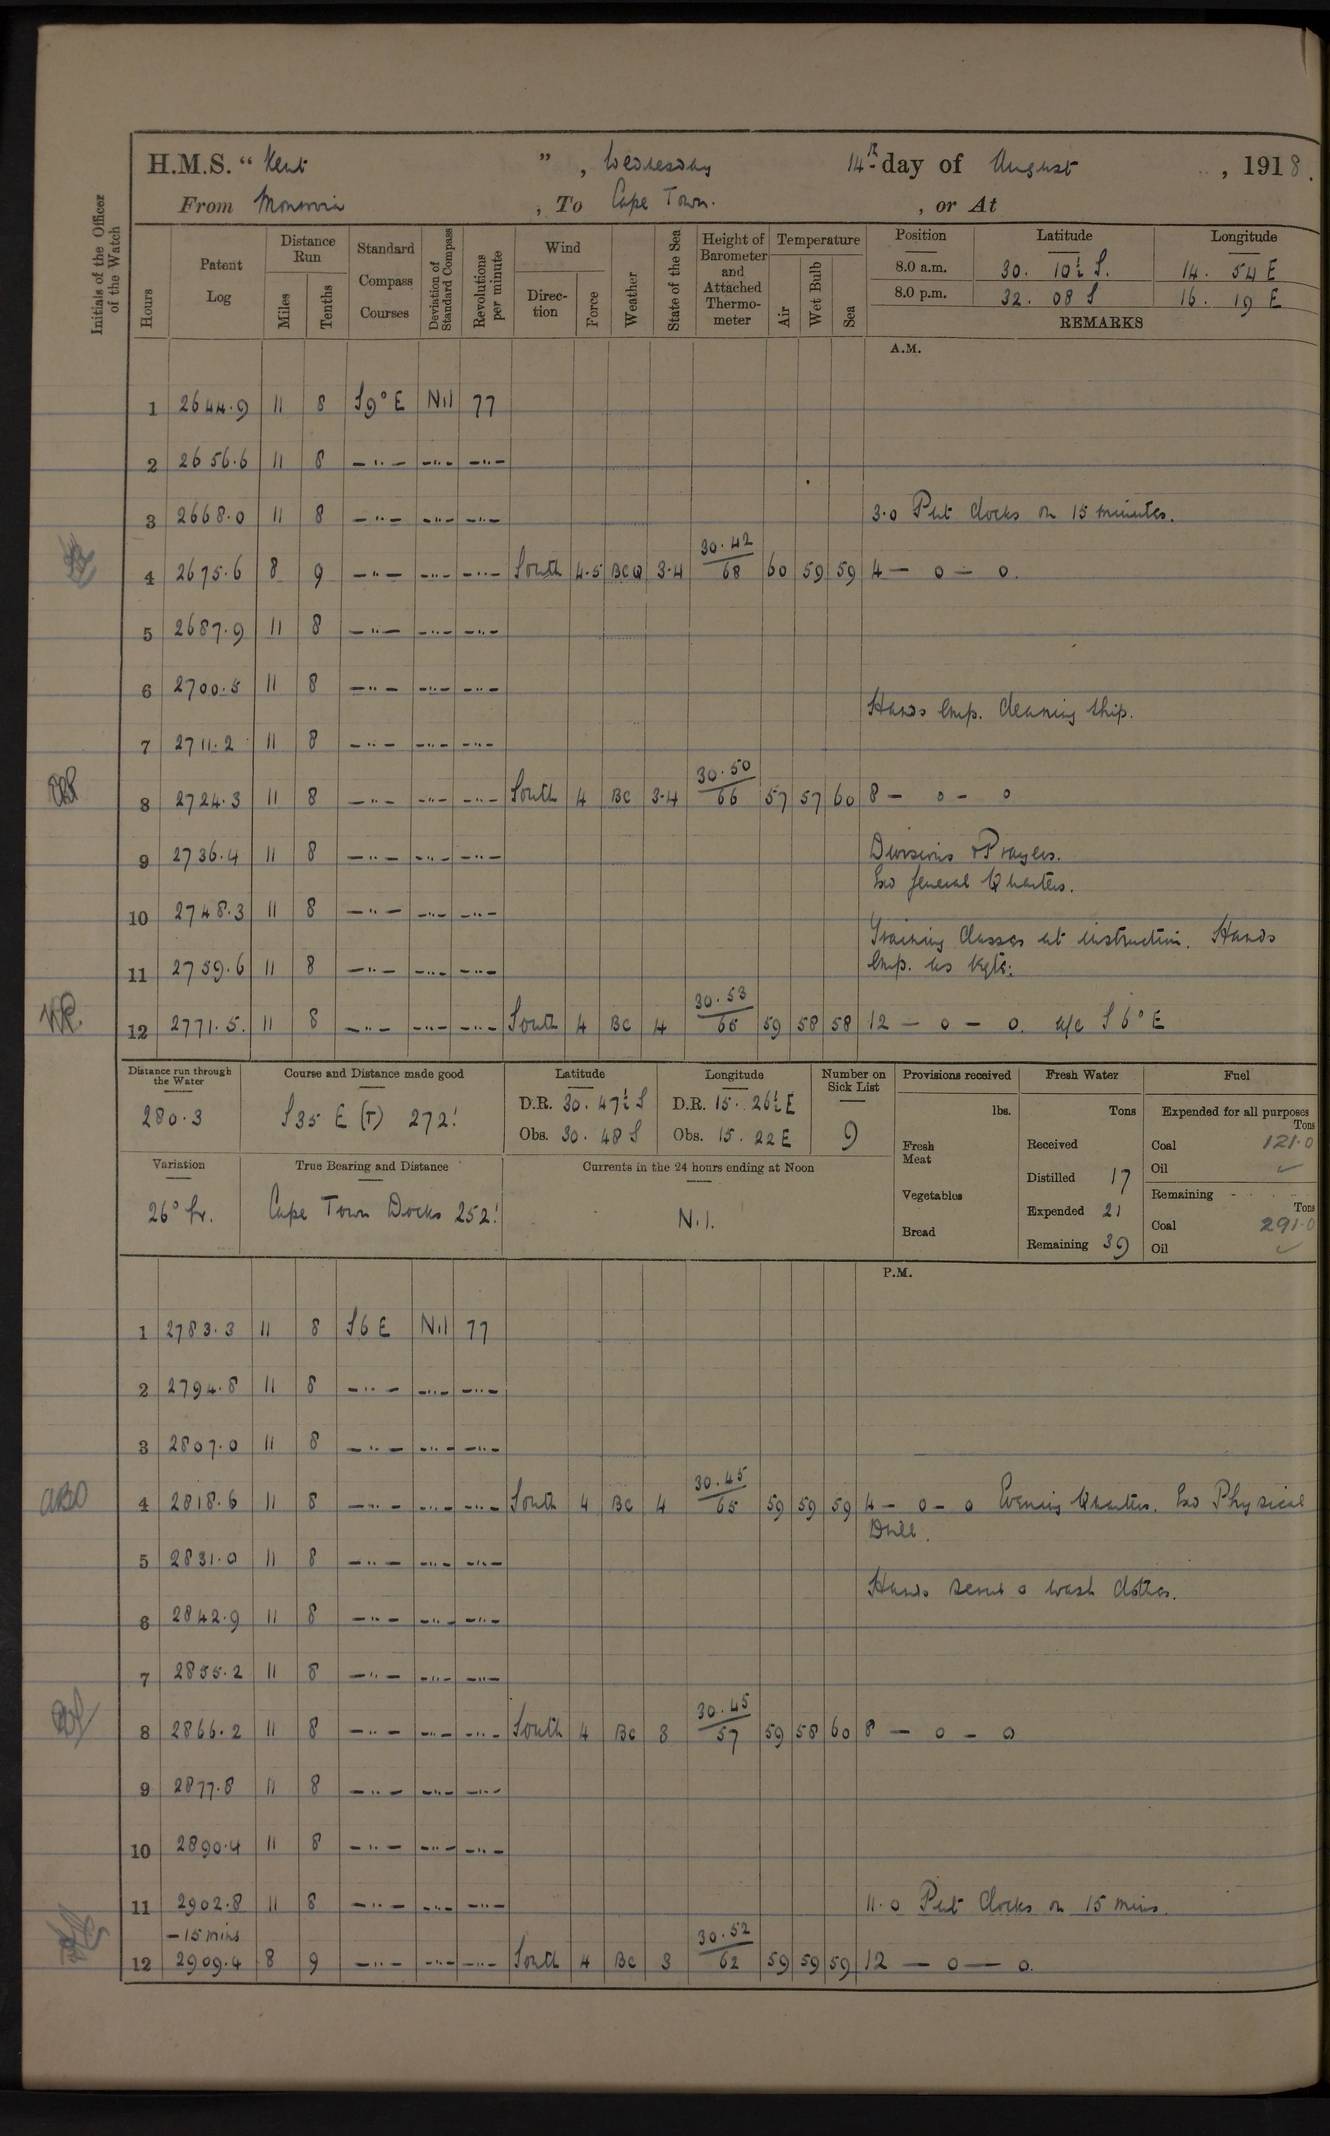 H.M.S. “ Kent ” , Wednesday 14th day of August , 1918.
From Monrovia , To Cape Town. , or At
Initials of the Officer of the Watch
Hours Patent Log Distance Run Miles Tenths Standard Compass Courses Deviation of Standard Compass Revolutions per minute Wind Direction Force Weather State of the Sea Height of Barometer and Attached Thermometer Temperature Air Wet Bulb Sea
Position Latitude Longitude
8.0 a.m. 30. 10½ S. 14. 54 E
8.0 p.m. 32. 08 S 16. 19 E
REMARKS
A.M.
1 2644.9 11 8 S9°E Nil 77
2 2656.6 11 8 —"— —"— —"—
3 2668.0 11 8 —"— —"— —"— 3.0 Put clocks on 15 minutes.
4 2675.6 8 9 —"— —"— —"— South 4.5 BCQ 3.4 30.42/68 60 59 59 4 — o — o.
5 2687.9 11 8 —"— —"— —"—
6 2700.5 11 8 —"— —"— —"—
Hands emp. cleaning ship.
7 2711.2 11 8 —"— —"— —"—
8 2724.3 11 8 —"— —"— —"— South 4 BC 3.4 30.50/66 57 57 60 8 — o — o
9 2736.4 11 8 —"— —"— —"— Divisions & Prayers.
Exd General Quarters.
10 2748.3 11 8 —"— —"— —"—
Training classes at instruction. Hands
11 2759.6 11 8 —"— —"— —"— emp. as reqte.
12 2771.5. 11 8 —"— —"— —"— South 4 BC 4 30.53/65 59 58 58 12 — o — o. a/c S6°E
Distance run through the Water 280.3
Course and Distance made good S35 E (T) 272'
Latitude D.R. 30. 47½ S Obs. 30. 48 S
Longitude D.R. 15. 26½ E Obs. 15. 22 E
Number on Sick List 9
Variation 26° W.
True Bearing and Distance Cape Town Docks 252'
Currents in the 24 hours ending at Noon Nil.
Provisions received lbs.
Fresh Meat
Vegetables
Bread
Fresh Water Tons
Received
Distilled 17
Expended 21
Remaining 39
Fuel
Expended for all purposes Tons
Coal 121.0
Oil ✓
Remaining Tons
Coal 291.0
Oil ✓
P.M.
1 2783.3 11 8 S6E Nil 77
2 2794.8 11 8 —"— —"— —"—
3 2807.0 11 8 —"— —"— —"—
ABO 4 2818.6 11 8 —"— —"— —"— South 4 BC 4 30.45/65 59 59 59 4 — o — o Evening Quarters. Exd Physical
Drill.
5 2831.0 11 8 —"— —"— —"—
Hands scrub & wash clothes.
6 2842.9 11 8 —"— —"— —"—
7 2855.2 11 8 —"— —"— —"—
8 2866.2 11 8 —"— —"— —"— South 4 BC 3 30.45/57 59 58 60 8 — o — o
9 2877.8 11 8 —"— —"— —"—
10 2890.4 11 8 —"— —"— —"—
11 2902.8 11 8 —"— —"— —"— 11.0 Put clocks on 15 mins.
— 15 mins
12 2909.4 8 9 —"— —"— —"— South 4 BC 3 30.52/62 59 59 59 12 — o — o.